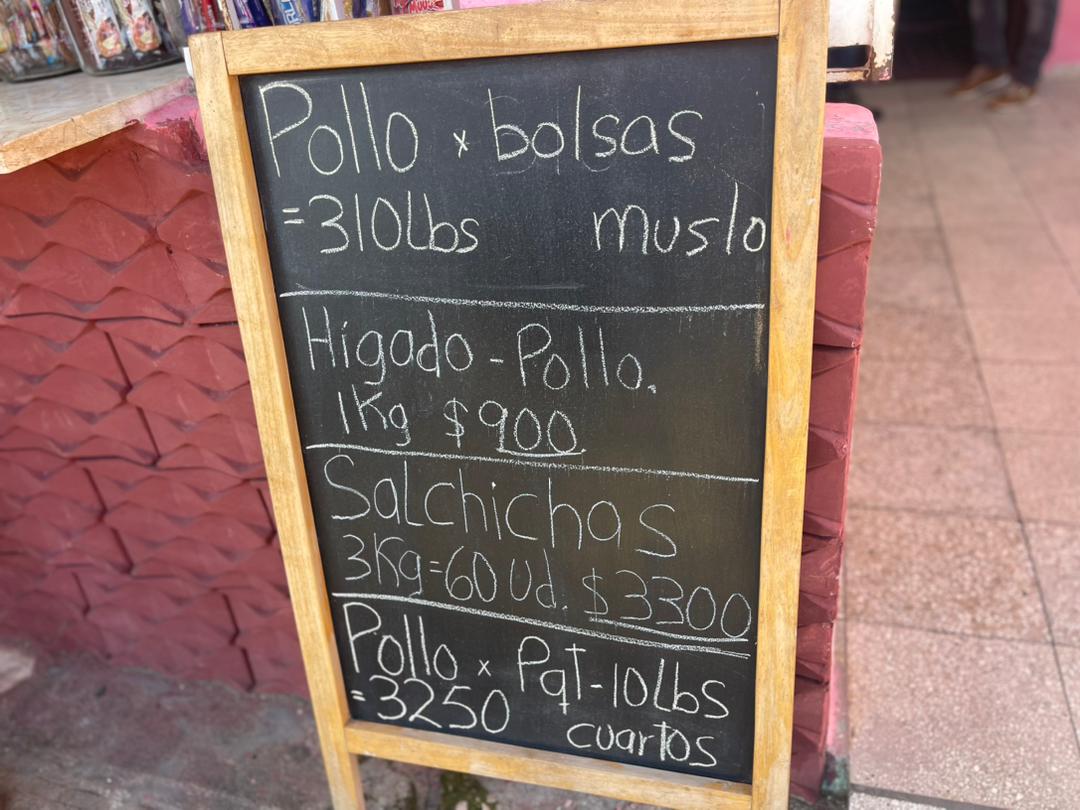 Pollo x bolsas
=310Lbs muslo
Hígado - Pollo.
1Kg $900
Salchichas
3Kg=60 Ud. $3300
Pollo x Pqt-10Lbs
=3250 cuartos